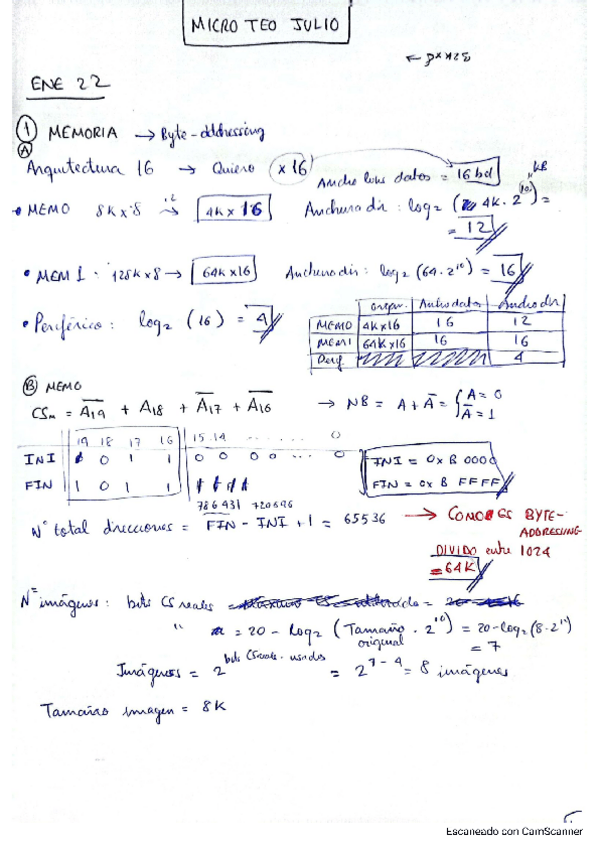 MICRO TEO JULIO
← 32K×8
ENE 22
① MEMORIA → Byte-addressing
Ⓐ
Arquitectura 16 → Quiero ×16
Ancho bus datos = 16 bd
• MEM0 8K×8 → 4K×16 Anchura dir: log₂ (4K · 2¹⁰) = KB
= 12
• MEM1: 128K×8 → 64K×16 Anchura dir: log₂ (64 · 2¹⁰) = 16
• Periférico: log₂ (16) = 4
Organ. Ancho datos Ancho dir
MEM0 4K×16 16 12
MEM1 64K×16 16 16
Perif. 4
Ⓑ MEM0
CSₘ = A̅1̅9̅ + A18 + A̅1̅7̅ + A̅1̅6̅ → NB = A + A̅ = { A = 0
A̅ = 1
19 18 17 16 15 14 ........ 0
INI 1 0 1 1 0 0 0 0 ... 0
FIN 1 0 1 1 1 1 1 1
INI = 0x B 0000
FIN = 0x B FFFF
786431 720896
Nº total direcciones = FIN - INI + 1 = 65536 → COMO ES BYTE-
ADDRESSING
DIVIDO entre 1024
= 64K
Nº imágenes: bits CS reales
" = 20 - log₂ (Tamaño original · 2¹⁰) = 20 - log₂ (8 · 2¹⁰)
= 7
Imágenes = 2^bits CS reales - usados = 2^7-4 = 8 imágenes
Tamaños imagen = 8K
Escaneado con CamScanner